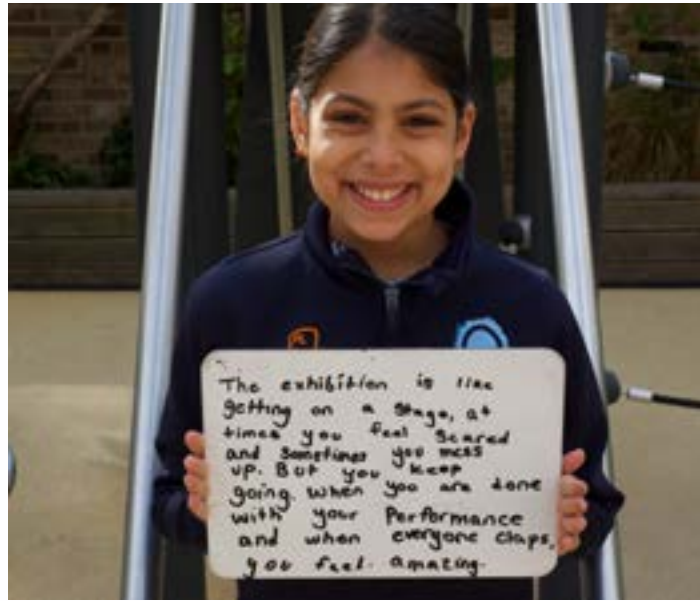 The exhibition is like
getting on a stage, at
times you feel scared
and sometimes you mess
up. But you keep
going. When you are done
with your Performance
and when everyone claps,
you feel. amazing.